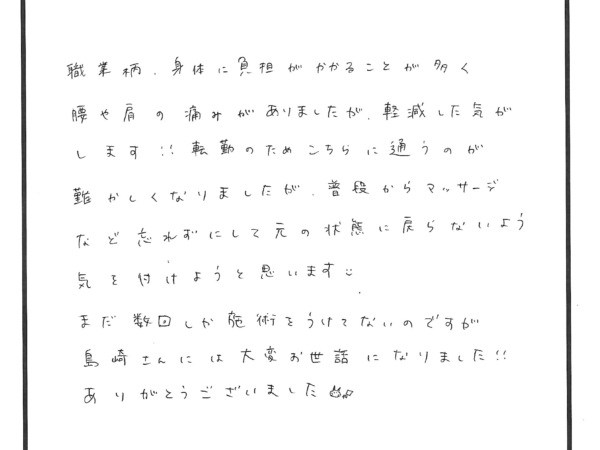 職業柄、身体に負担がかかることが多く
腰や肩の痛みがありましたが、軽減した気が
します!!転勤のためこちらに通うのが
難かしくなりましたが、普段からマッサージ
など忘れずにして元の状態に戻らないよう
気を付けようと思います
まだ数回しか施術をうけてないのですが
島崎さんには大変お世話になりました!!
ありがとうございました